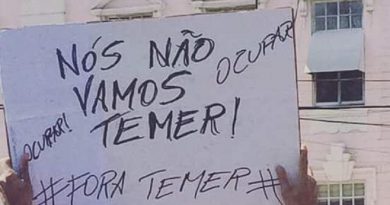 NÓS NÃO
VAMOS
TEMER!
OCUPAR
OCUPAR!
#FORA TEMER#